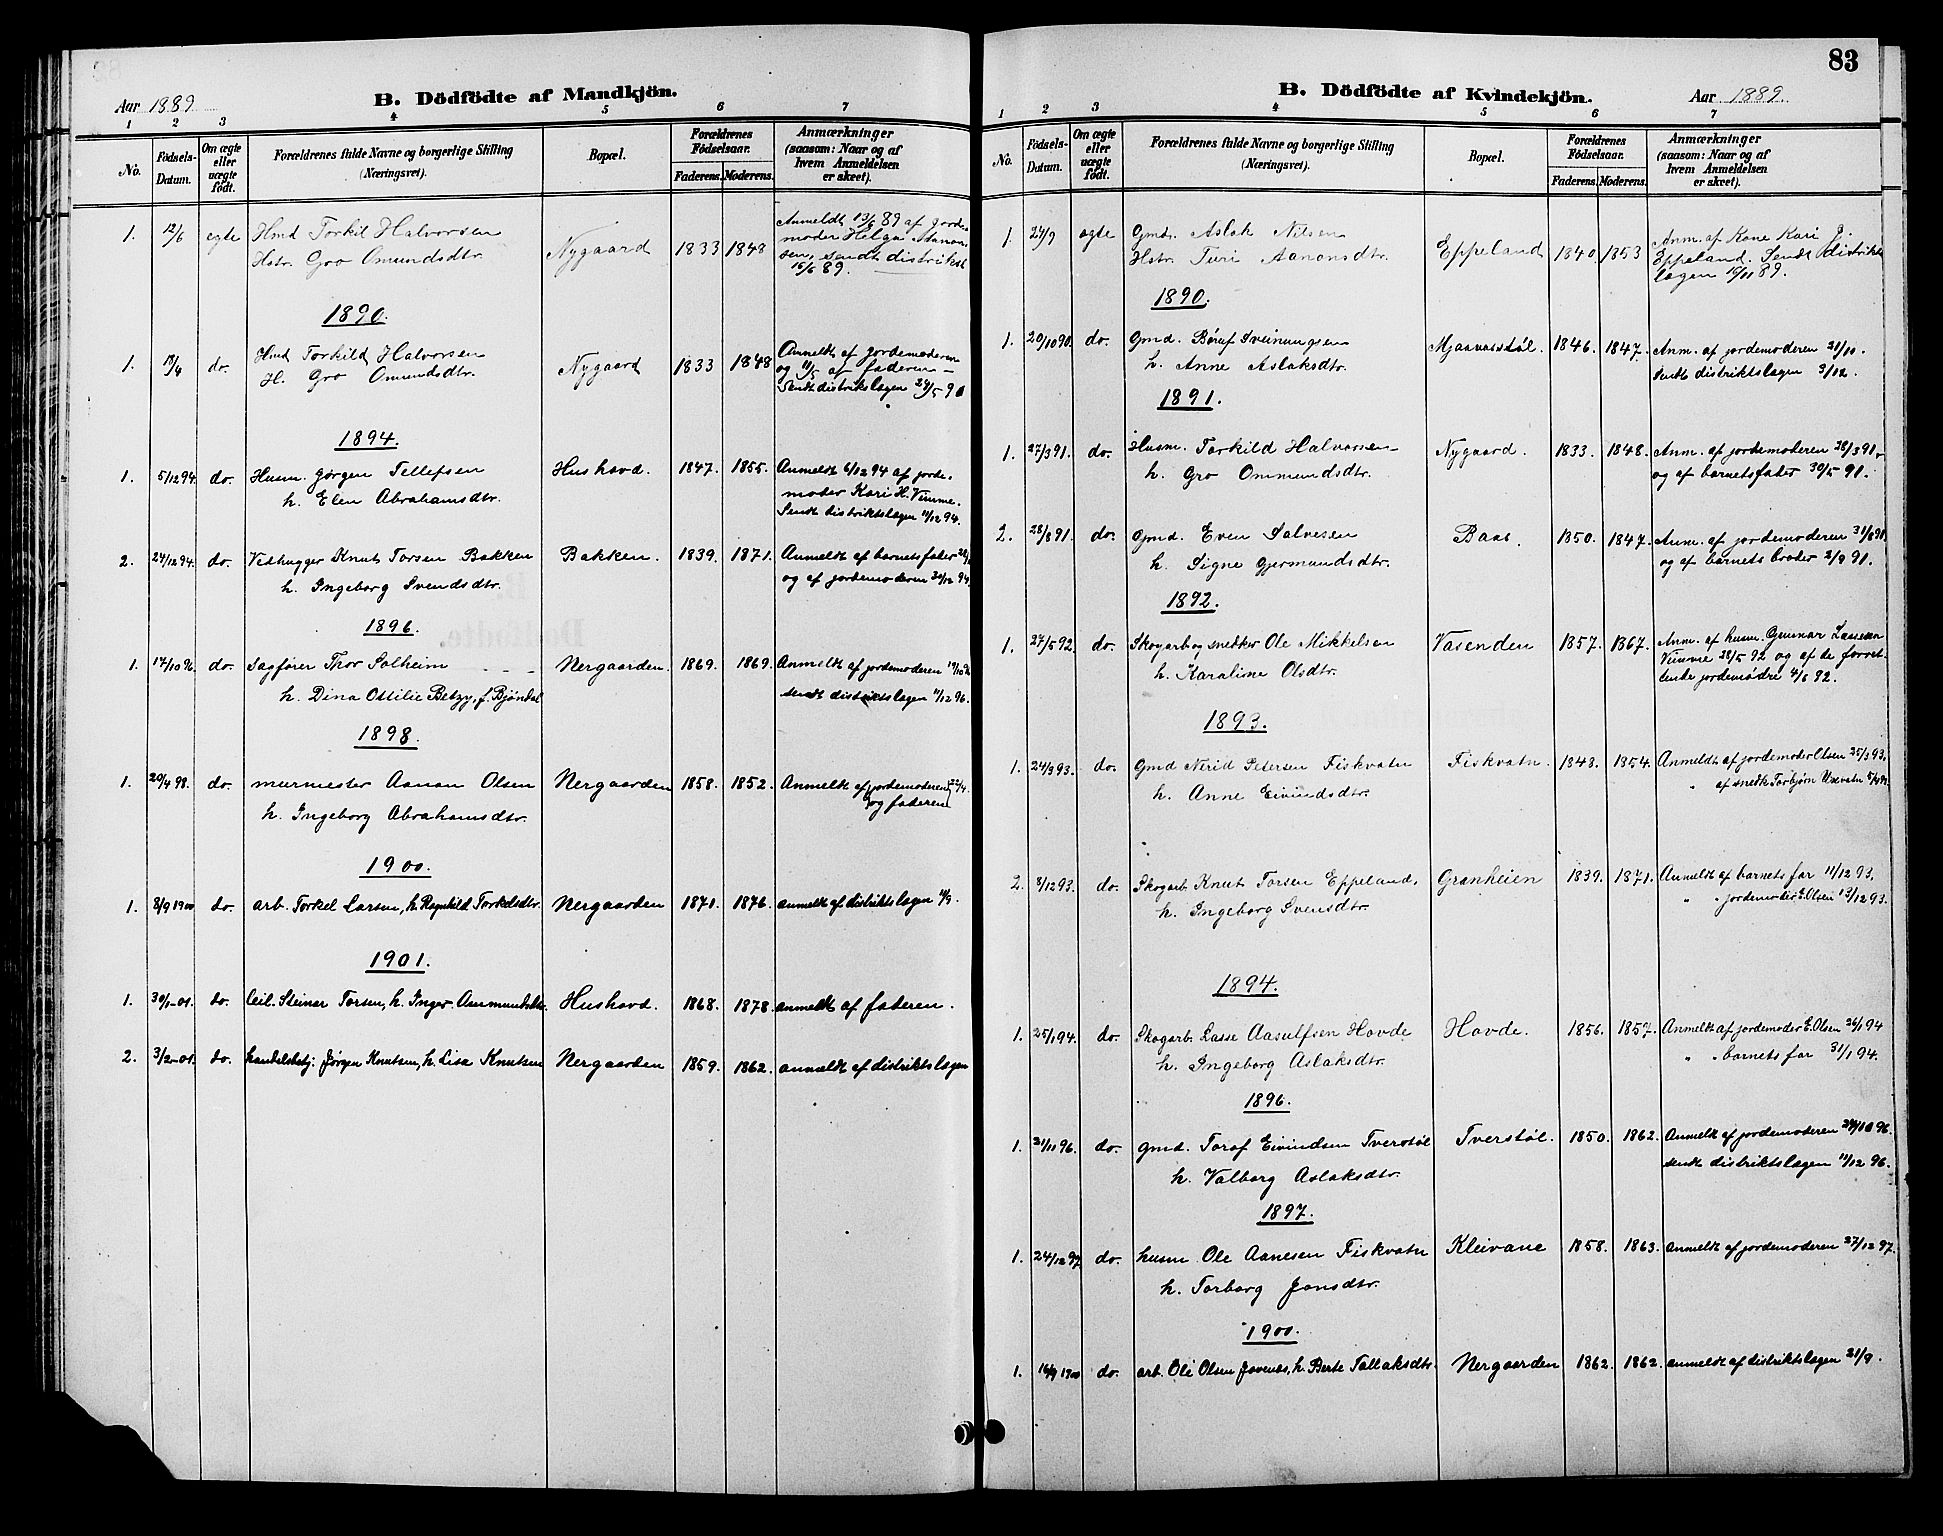 Aar 1889.
B. Dödfödte af Mandkjön.
1 2 3 4 5 6 7
No. Födsels-Datum. Om ægte eller uægte födt. Forældrenes fulde Navne og borgerlige Stilling (Næringsvei). Bopæl. Forældrenes Födselsaar. Faderens. Moderens. Anmærkninger (saasom: Naar og af hvem Anmeldelsen er skeet).
1. 12/6 egte Hmd Torkil Halvorsen Nygaard 1833 1848 Anmeldt 13/6 89 af jorde-
Hstr. Gro Omundsdtr. moder Helga Aanon-
sen, sendt distriktsl.
15/6 89.
1890.
1. do. Hmd Torkild Halvorsen Nygaard 1833 1848 Anmeldt af jordemoderen
H. Gro Omundsdtr. og 11/5 af faderen –
Sendt distrikslægen 24/5 90
1894.
1. 5/12 94. do. Husm. Jørgen Tellefsen Hushovd. 1847. 1855. Anmeldt 6/12 94 af jorde-
h. Elen Abrahamsdtr. moder Kari H. Vimme.
Sendt distriktslægen 11/12 94.
2. 24/12 94. do. Vedhugger Knut Torsen Bakken Bakken. 1839. 1871. Anmeldt af barnets fater
h. Ingeborg Svendsdtr. og af jordemoderen 30/12 94.
1896.
1. 17/10 96. do. Sagfører Thor Solheim Nergaarden. 1869. 1869. Anmeldt af jordemoderen
h. Dina Ottilie Betzy, f. Bjöndal sendt distriktslægen 11/12 96.
1898.
1. 20/4 98. do. murmester Aanon Olsen Nergaarden 1858. 1852. Anmeldt af jordemoderen 22/4.
h. Ingeborg Abrahamsdtr. og faderen
1900.
1. 8/9 1900 do. arb. Torkel Larsen, h. Ragnhild Torkelsdtr. Nergaarden 1871. 1876. anmeldt af distriktslægen
1901.
1. 30/1-01. do. Steinar Torsen, h. Inger Hushovd. 1868. 1878. anmeldt af faderen.
2. 3/2-01. do. handelsbetj. Jørgen Knutsen, h. Lisa Knutsen Nergaarden 1859. 1862. anmeldt af distriktslægen
83
B. Dödfödte af Kvindekjön.
Aar 1889.
1 2 3 4 5 6 7
No. Födsels-Datum. Om ægte eller uægte födt. Forældrenes fulde Navne og borgerlige Stilling (Næringsvei). Bopæl. Forældrenes Födselsaar. Faderens. Moderens. Anmærkninger (saasom: Naar og af hvem Anmeldelsen er skeet).
1. 24/9 egte Gmd. Aslak Nilsen Eppeland 1840. 1853 Anm. af Kone Kari J.
Hstr. Turi Aanonsdtr. Eppeland. Sendt distrikts
lægen 89.
1890.
1. 20/10 90. do. Gmd. Sveinungsen Mjaavasstöl. 1846. 1847. Anm. af jordemoderen
h. Anne Aslaksdtr. Sendt distriktslægen 3/12.
1891.
1. 27/3 91. do. Husm. Torkild Halvorsen Nygaard. 1833. 1848. Anm. af jordemoderen 28/3 91.
h. Gro Ommundsdtr. og af barnets fater 30/5 91.
2. 28/8 91. do. Gmd. Even Salvesen Baas. 1850. 1847. Anm. af jordemoderen 31/8 91
h. Signe Gjermundsdtr. og af barnets broder 2/9 91.
1892.
1. 27/5 92. do. Skogarb og snetker Ole Mikkelsen Vasenden 1857. 1867. Anm. af husm. Gunnar Lassesen
h. Karaline Olsdtr. Vimme 28/5 92 og af de forret-
tende jordemødre 4/6 92.
1893.
1. 24/3 93. do. Gmd Nerid Petersen Fiskvatn Fiskvatn. 1848. 1854. Anmeldt af jordemoder Olsen 25/3 93.
h. Anne Eivindsdtr. " af snedk Torbjørn
2. 8/12 93. do. Skogarb. Knut Torsen Eppeland, Granheien 1839. 1871. Anmeldt af barnets far 11/12 93.
h. Ingeborg Svensdtr. " " jordemoder E. Olsen 13/12 93.
1894.
1. 25/1 94. do. Skogarb. Lasse Aasulfsen Hovde Hovde. 1856. 1857. Anmeldt af jordemoder E. Olsen 26/1 94
h. Ingeborg Aslaksdtr. " " barnets far 31/1 94.
1896.
1. 21/11 96. do. gmd. Toraf Eivindsen Tverstöl Tverstöl. 1850. 1862. Anmeldt af jordemoderen
h. Valborg Aslaksdtr. sendt distriktslægen 11/12 96.
1897.
1. 24/12 97. do. husm Ole Aanesen Fiskvatn Kleivane 1858. 1863. Anmeldt af jordemoderen 27/12 97.
h. Torborg Jonsdtr.
1900.
1. 16/9 1900 do. arb. Ole Olsen h. Berte Tallaksdtr. Nergaarden 1862. 1862. anmeldt af distriktslægen 21/9.